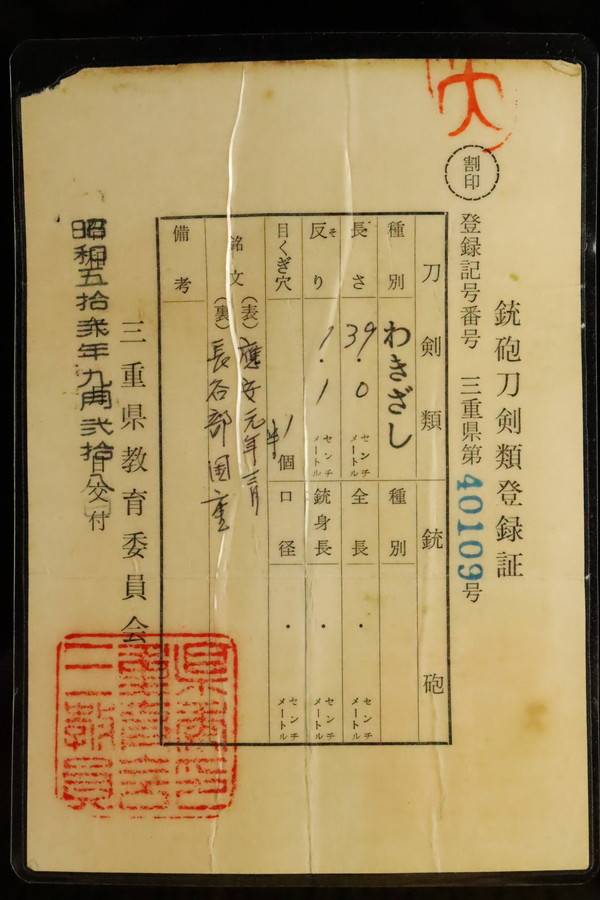 銃砲刀剣類登録証
割印
登録記号番号 三重県第40109号
刀剣類
銃砲
種別 わきざし
種別
長さ 39.0 センチメートル
全長 . センチメートル
反り そ 1.1 センチメートル
銃身長 . センチメートル
目くぎ穴 1 個
口径 . センチメートル
銘文 (表) 應安元年 月
(裏) 長谷部国重
備考
三重県教育委員会
昭和五拾参年九月弐拾日交付